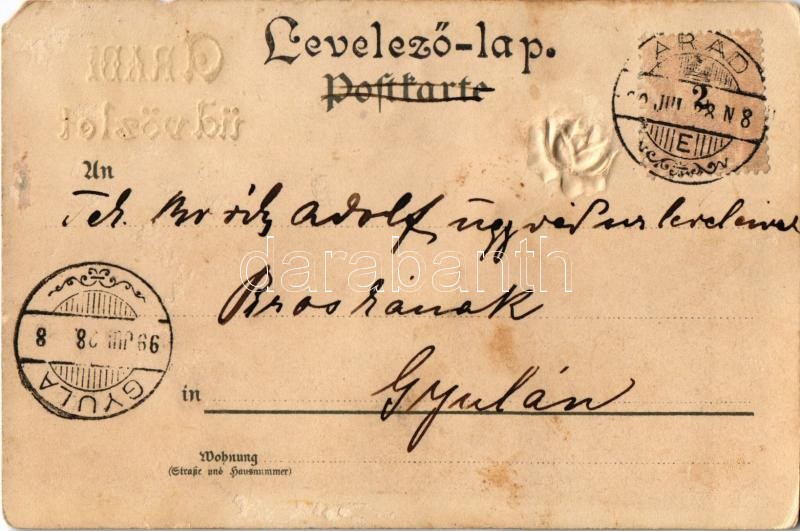 ARADI
üdvözlet
Levelező-lap.
Postkarte
ARAD
99 JUL. 28 N 8
2
E
An
Tek. Adolf ügyvéd úr leveleivel
Gyulán
in
99 JUL. 28. 8
GYULA
Wohnung
(Straße und Hausnummer)
darabanth